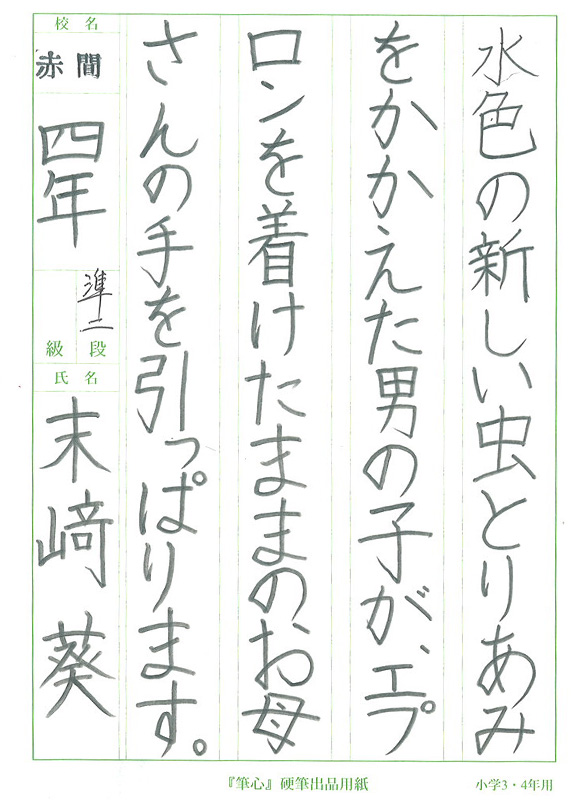 水色の新しい虫とりあみ
をかかえた男の子が、エプ
ロンを着けたままのお母
さんの手を引っぱります。
校名
赤間
四年
準二
段
級
氏名
末﨑葵
『筆心』硬筆出品用紙
小学3・4年用